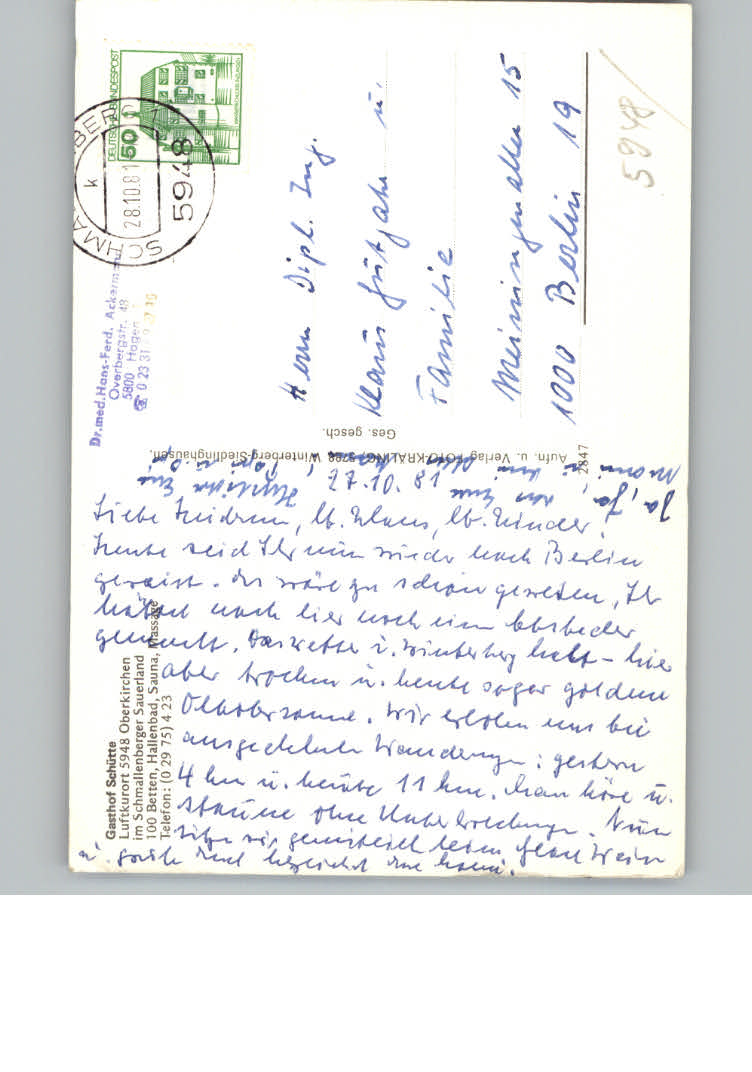 DEUTSCHE BUNDESPOST
50
SCHMALLENBERG 1
28.10.81
k
5948
5948
Dr.med.Hans-Ferd. Ackermann
Overbergstr. 48
5800 Hagen
☎ 0 23 31
Herrn Dipl. Ing.
Klaus Gutjahr u.
Familie
Meiningenallee 15
1000 Berlin 19
Aufn. u. Verlag FOTO-KRALING, 5788 Winterberg-Siedlinghausen.
Ges. gesch.
2847
Gasthof Schütte
Luftkurort 5948 Oberkirchen
im Schmallenberger Sauerland
100 Betten, Hallenbad, Sauna, Massage
Telefon: (0 29 75) 4 23
27.10.81
Liebe Heidrun, lb. Klaus, lb. Kinder,
Heute seid Ihr nun wieder nach Berlin
gereist. Es wäre zu schön gewesen, Ihr
hättet noch hier noch einen Abstecher
gemacht. Das Wetter i. Winterberg kalt - hier
aber trocken u. heute sogar goldene
Oktobersonne. Wir erholen uns bei
ausgedehnten Wanderungen: gestern
4 km u. heute 11 km. Man höre u.
staune ohne Unterbrechungen. Nun
sitzen wir gemütlich beim Glas Wein
u.
Ja, ja,
Herzlichst Eure
Omi u. Opi